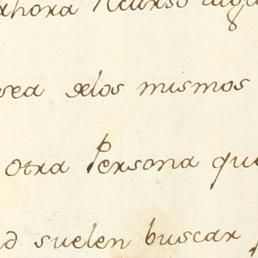 ahora Recurso algu
sea delos mismos
otra Persona que
d suelen buscar p